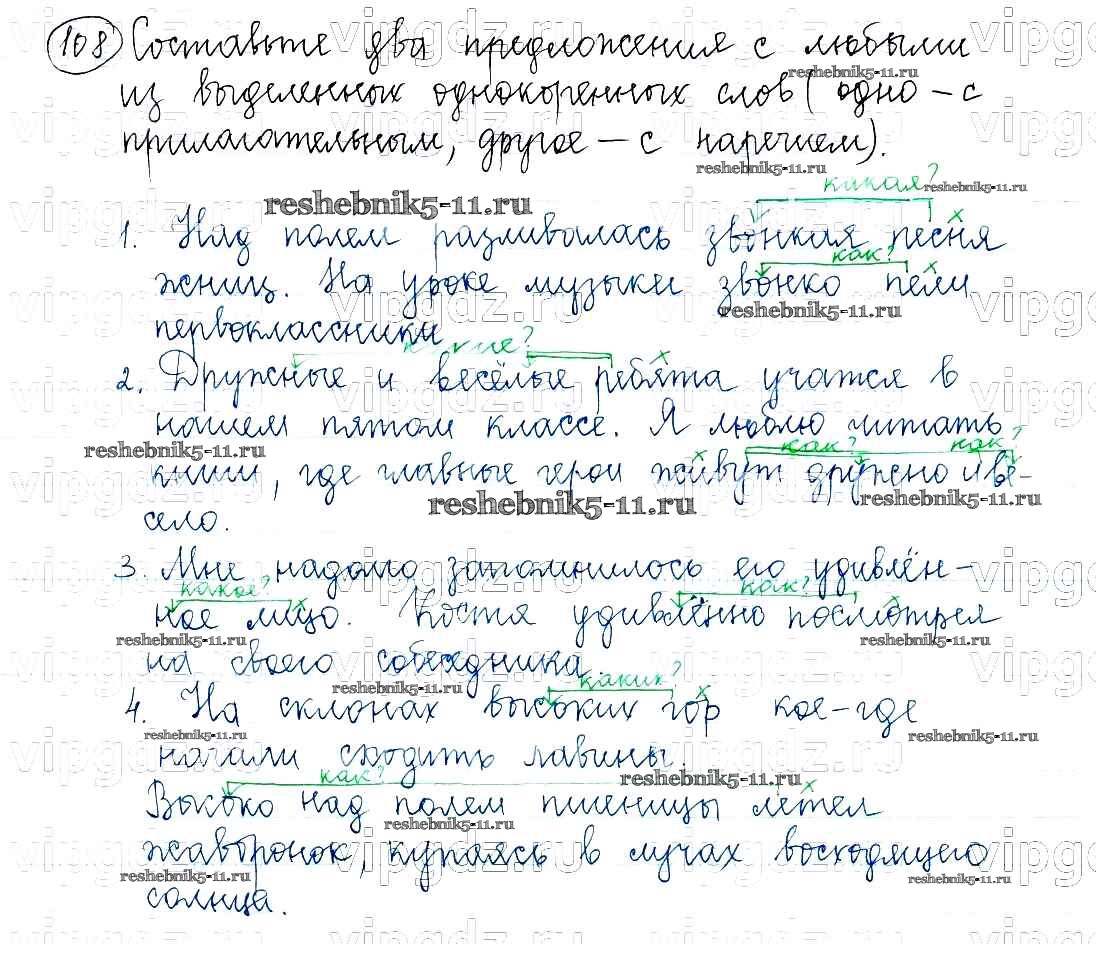 108 Составьте два предложения с любыми
из выделенных однокоренных слов (одно – с
прилагательным, другое – с наречием).
reshebnik5-11.ru
какая?
1. Над полем разливалась звонкая песня
как?
жниц. На уроке музыки звонко пели
первоклассники.
какие?
2. Дружные и весёлые ребята учатся в
нашем пятом классе. Я люблю читать
как? как?
книги, где главные герои живут дружно и ве-
село.
3. Мне надолго запомнилось его удивлён-
какое? как?
ное лицо. Костя удивлённо посмотрел
на своего собеседника.
каких?
4. На склонах высоких гор кое-где
начали сходить лавины.
как?
Высоко над полем пшеницы летел
жаворонок, купаясь в лучах восходящего
солнца.
vipgdz.ru